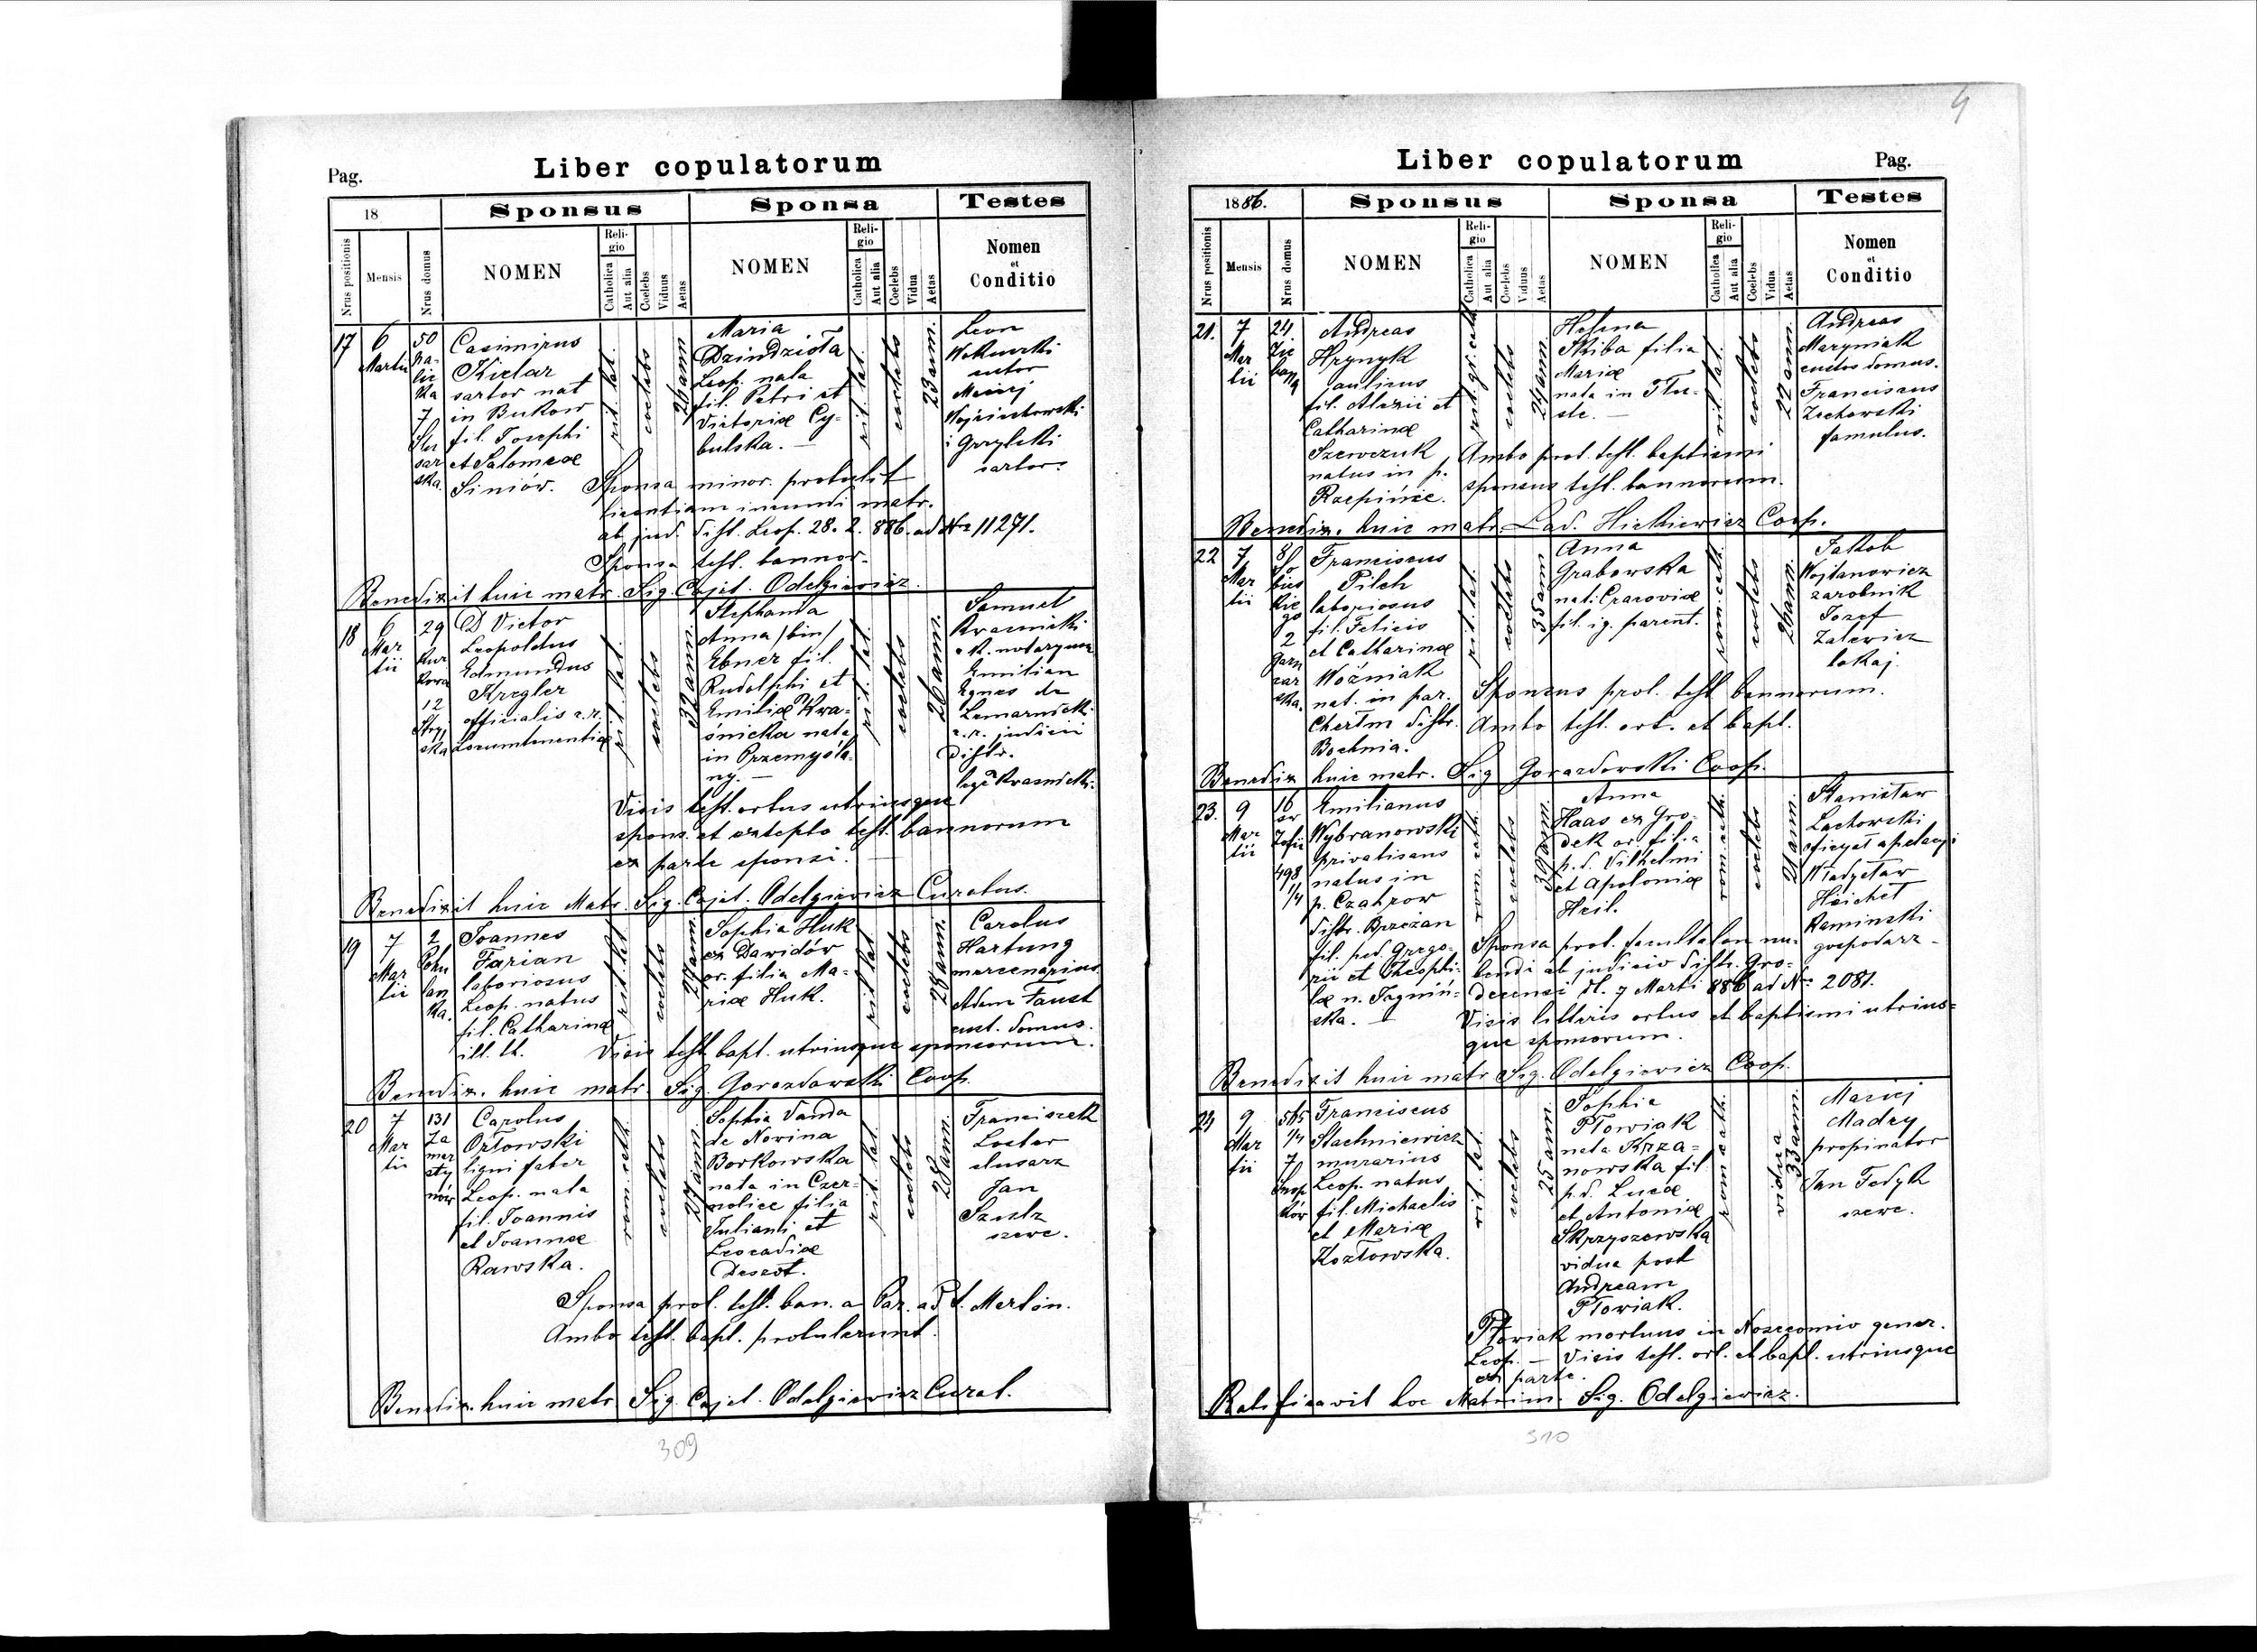 Pag.
Liber copulatorum
18
Sponsus
Sponsa
Testes
Nrus positionis
Mensis
Nrus domus
NOMEN
Religio
Catholica
Aut alia
Coelebs
Viduus
Aetas
NOMEN
Religio
Catholica
Aut alia
Coelebs
Vidua
Aetas
Nomen
et
Conditio
17
6
Martii
50
Ha-
lic
ka
7
ska.
Casimirus
Kielar
sartor nat
in Bukow
fil. Josephi
et Salomeae
Siniów.
rit. lat.
coelebs
26 ann
Maria
Dzindziola
Leop. nata
fil. Petri et
Victoriæ Cy-
bulska. —
rit. lat.
coelebs
23 ann.
Leon
sutor
Maciej
i Grzylski
sartor.
Sponsa minor. protulit
licentiam ineundi matr.
ab jud. distr. Leop. 28. 2. 886. ad Nr 11271.
Sponsa test. bannor.
Benedixit huic matr. Sig. Cajet. Odelgiewicz.
18
6
Mar
tii
29
Kur
kowa
12
Stryj
ska
D Victor
Leopoldus
Edmundus
Kregler
officialis c.r.
Locumtenentiæ
rit. lat.
coelebs
32 ann.
Stephania
Anna /bin/
Ebner fil.
Rudolphi et
Emiliæ Kra-
śnicka nata
in Przemyśla-
ny. —
rit. lat.
coelebs
26 ann.
Samuel
Krasnicki
c. k. notaryusz
Emilian
Agnes de
c.r. judicii
Distr.
Krasnicki.
Visis test. ortus utriusque
spons. et excepto test. bannorum
ex parte sponsi. —
Benedixit huic Matr. Sig. Cajet. Odelgiewicz Curatus.
19
7
Mar
tii
2
Pohu
lan
ka.
Joannes
Farian
laboriosus
Leop. natus
fil. Catharinæ
ill. th.
rit. lat
coelebs
27 ann.
Sophia Huk
ex Dawidów
or. filia Ma-
riæ Huk.
rit. lat
coelebs
28 ann.
Carolus
Hartung
mercenarius
Adam Faust
cust. domus.
Visis test. bapt. utriusque sponsorum.
Benedix. huic matr. Sig. Gorazdowski Coop.
20
7
Mar
tii
131
Za
mar
sty
nów
Carolus
Orłowski
ligni faber
Leop. nata
fil. Joannis
et Joannæ
Rawska.
rom. cath.
coelebs
27 ann.
Sophia Vanda
de Novina
Borkowska
nata in Czer-
nolice filia
Julianii et
Leocadiæ
Deszot.
rit. lat.
coelebs
28 ann.
Franciszek
Loster
ślusarz
Jan
Szulz
szewc.
Sponsa prot. test. ban. a Par. ad S. Martin.
Ambo test. bapt. protulerunt.
Benedix. huic matr Sig. Cajet. Odelgiewicz Curat.
309
4
Liber copulatorum
Pag.
1886.
Sponsus
Sponsa
Testes
Nrus positionis
Mensis
Nrus domus
NOMEN
Religio
Catholica
Aut alia
Coelebs
Viduus
Aetas
NOMEN
Religio
Catholica
Aut alia
Coelebs
Vidua
Aetas
Nomen
et
Conditio
21.
7
Mar
tii
24.
Andreas
Hrynyk
aulicus
fil. Alexii et
Catharinæ
Szewczuk
natus in p.
Rzepińce.
rit. gr. cath.
coelebs
24 ann.
Helena
Skiba filia
Mariæ
nata in Tłu-
ste. —
rit. lat.
coelebs
22 ann.
Andreas
Maryniak
custos domus.
Franciscus
Zechowski
famulus.
Ambo prot. test. baptismi
sponsus test. bannorum.
Benedix. huic matr. Lad. Hickiewicz Coop.
22
7
Mar
tii
2
Franciscus
Pilch
laboriosus
fil. Felicis
et Catharinæ
Woźniak
nat. in par.
Chełm distr.
Bochnia.
rit. lat.
coelebs
35 ann
Anna
Grabowska
nat. Cracoviæ
fil. ig. parent.
rom. cath.
coelebs
26 ann.
Jakob
Wojtanowicz
zarobnik
Jozef
Zalewicz
lokaj.
Sponsus prot. test bannorum.
Ambo test. ort. et bapt.
Benedix huic matr. Sig Gorazdowski Coop.
23.
9
Mar
tii
16
św
Zofii
498
1/4
Emilianus
Wybranowski
privatisans
natus in
p. Czahrow
distr. Brzeżan
fil. pd. Grego-
rii et Theophi-
læ n. Jagniń-
ska. —
rom. cath.
coelebs
30 ann.
Anna
Haas ex Gro-
dek or. filia
p.d. Vilhelmi
et Apoloniæ
Heil.
rom. cath.
coelebs
21 ann.
Stanisław
Lachowski
oficyał apelacyi
Władysław
Kaminski
gospodarz -
Sponsa prot. facultatem nu-
bendi ab judicio distr. Gro-
decensi dt. 7 Marti 886 ad Nr 2081.
Visis litteris ortus et baptismi utrius-
que sponsorum.
Benedixit huic matr Sig. Odelgiewicz Coop.
24
9
Mar
tii
565
1/4
7
Snop
ków
Franciscus
Stachniewicz
murarius
Leop. natus
fil. Michaelis
et Mariæ
Kozłowska.
rit. lat.
coelebs
25 ann.
Sophia
Płowiak
nata Krza-
nowska fil.
p.d. Lucæ
et Antoniæ
Skrzyszewska
vidua post
Andream
Płowiak.
rom cath.
vidua
33 ann.
Maciej
Madry
propinator
Jan Fedyk
szewc.
Płowiak mortuus in Nosocomio gener.
Leop. — Visis test. ort. et bapt. utriusque
ex parte.
Ratificavit hoc Matrim. Sig. Odelgiewicz.
310